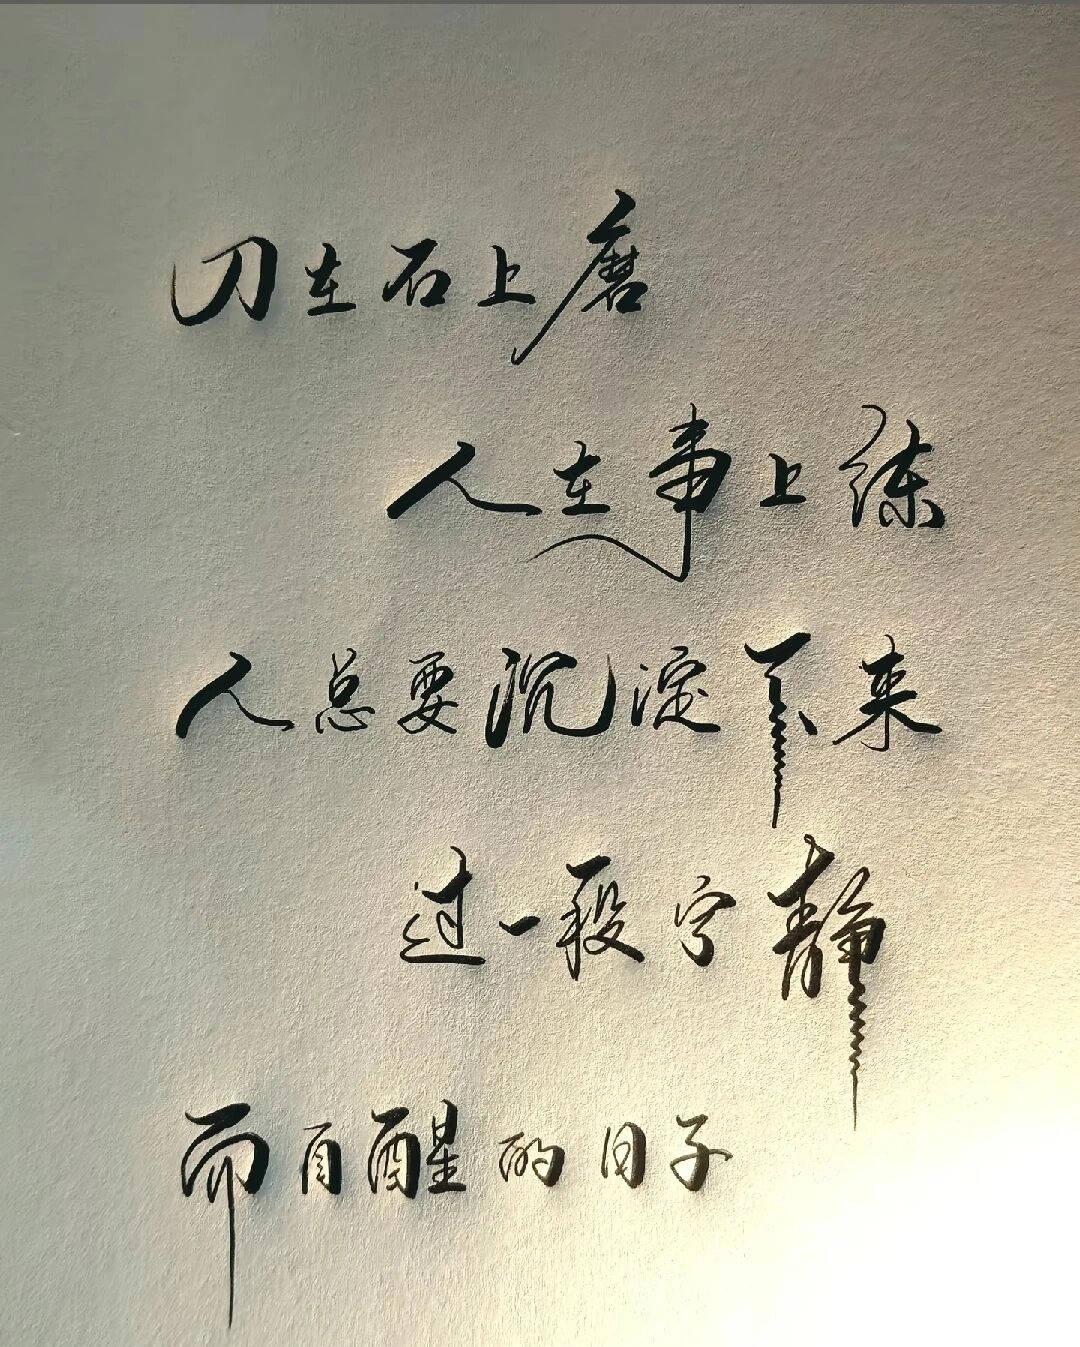 刀在石上磨
人在事上练
人总要沉淀下来
过一段宁静
而自醒的日子